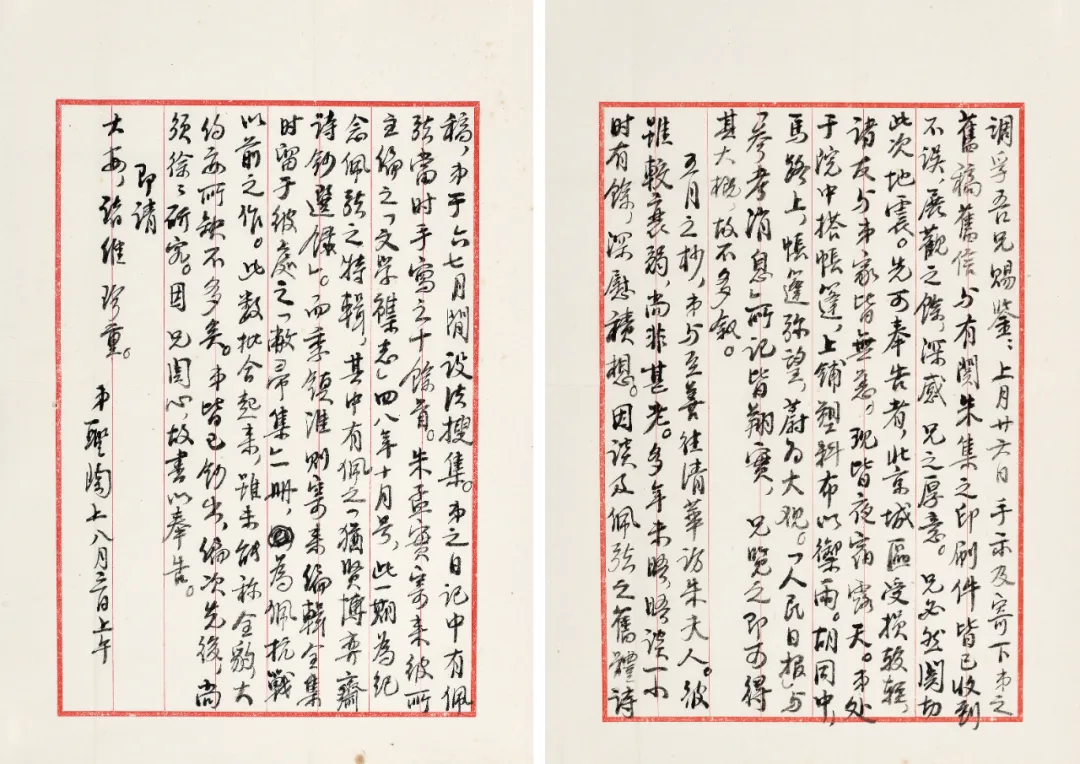 调孚吾兄赐鉴：上月廿六日 手示及寄下弟之
舊稿舊信与有關朱集之印刷件皆已收到
不误，展觀之餘，深感 兄之厚意。 兄必然関切
此次地震。先可奉告者，北京城區受損較輕
诸友与弟家皆無恙，现皆夜宿露天。弟处
于院中搭帐篷，上铺塑料布以禦雨。胡同中，
馬路上，帐篷弥望，蔚为大觀。「人民日报」与
「参考消息」所记皆翔實， 兄览之即可得
其大概，故不多叙。
五月之杪，弟与至善往清華访朱夫人。彼
雖較衰弱，尚非甚老。多年未晤，晤谈一小
时有餘，深慰積想。因谈及佩弦之舊體詩
稿，弟于六七月間设法搜集。弟之日记中有佩
弦當时手寫之十餘首。朱孟實寄来彼所
主编之「文学雜志」四八年十月号，此一期為纪
念佩弦之特輯，其中有佩之「猶賢博弈齋
詩鈔選錄」。而季镇淮则寄来编輯全集
时留于彼處之「敝帚集」一册，為佩抗戰
以前之作。此数批合起来，雖未能称全豹，大
约每所缺不多矣。弟皆已鈔出，编次先後，尚
须徐徐研究。因 兄関心，故書以奉告。
即請
大安，諸維 珍重。
弟聖陶上 八月三日上午